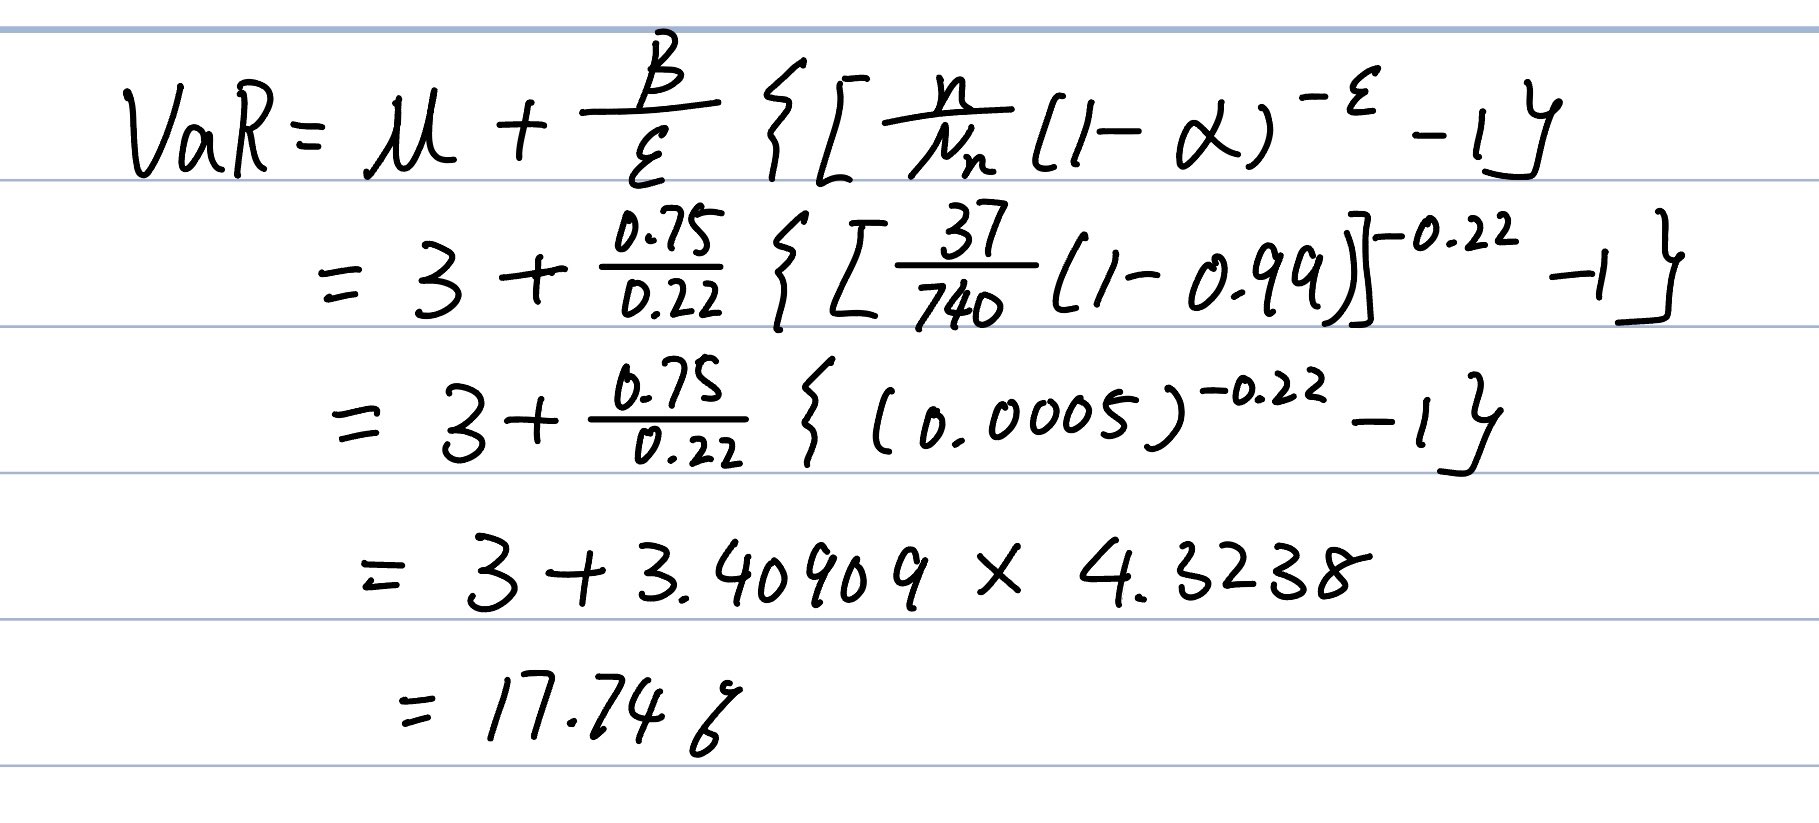 VaR = μ + β/ε {[n/Nn (1 - α)^-ε - 1}
= 3 + 0.75/0.22 {[37/740 (1 - 0.99)]^-0.22 - 1}
= 3 + 0.75/0.22 {(0.0005)^-0.22 - 1}
= 3 + 3.40909 × 4.3238
= 17.74